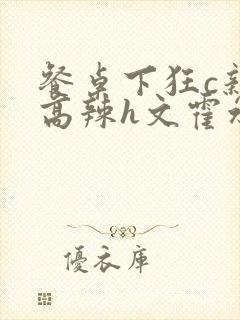 餐桌下狂c新
高辣h文霍水
優衣库